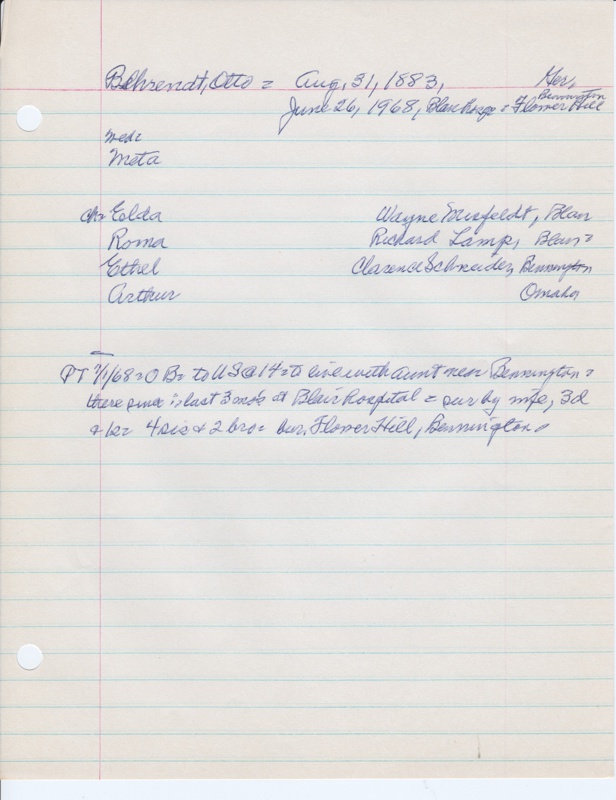 Behrendt, Otto = Aug. 31, 1883, Ger,
Bennington
June 26, 1968, Blair Hosp = Flower Hill
med =
Meta
ch= Eelda Wayne Misfeldt, Blair
Roma Richard Lamp, Blair =
Ethel Clarence Schneider, Bennington
Arthur Omaha
PT 7/1/68 = O B = to US @ 14 = to live with aunt near Bennington =
there since = last 3 mos at Blair Hospital = sur by wife, 3d
& 1s = 4 sis & 2 bro = bur. Flower Hill, Bennington